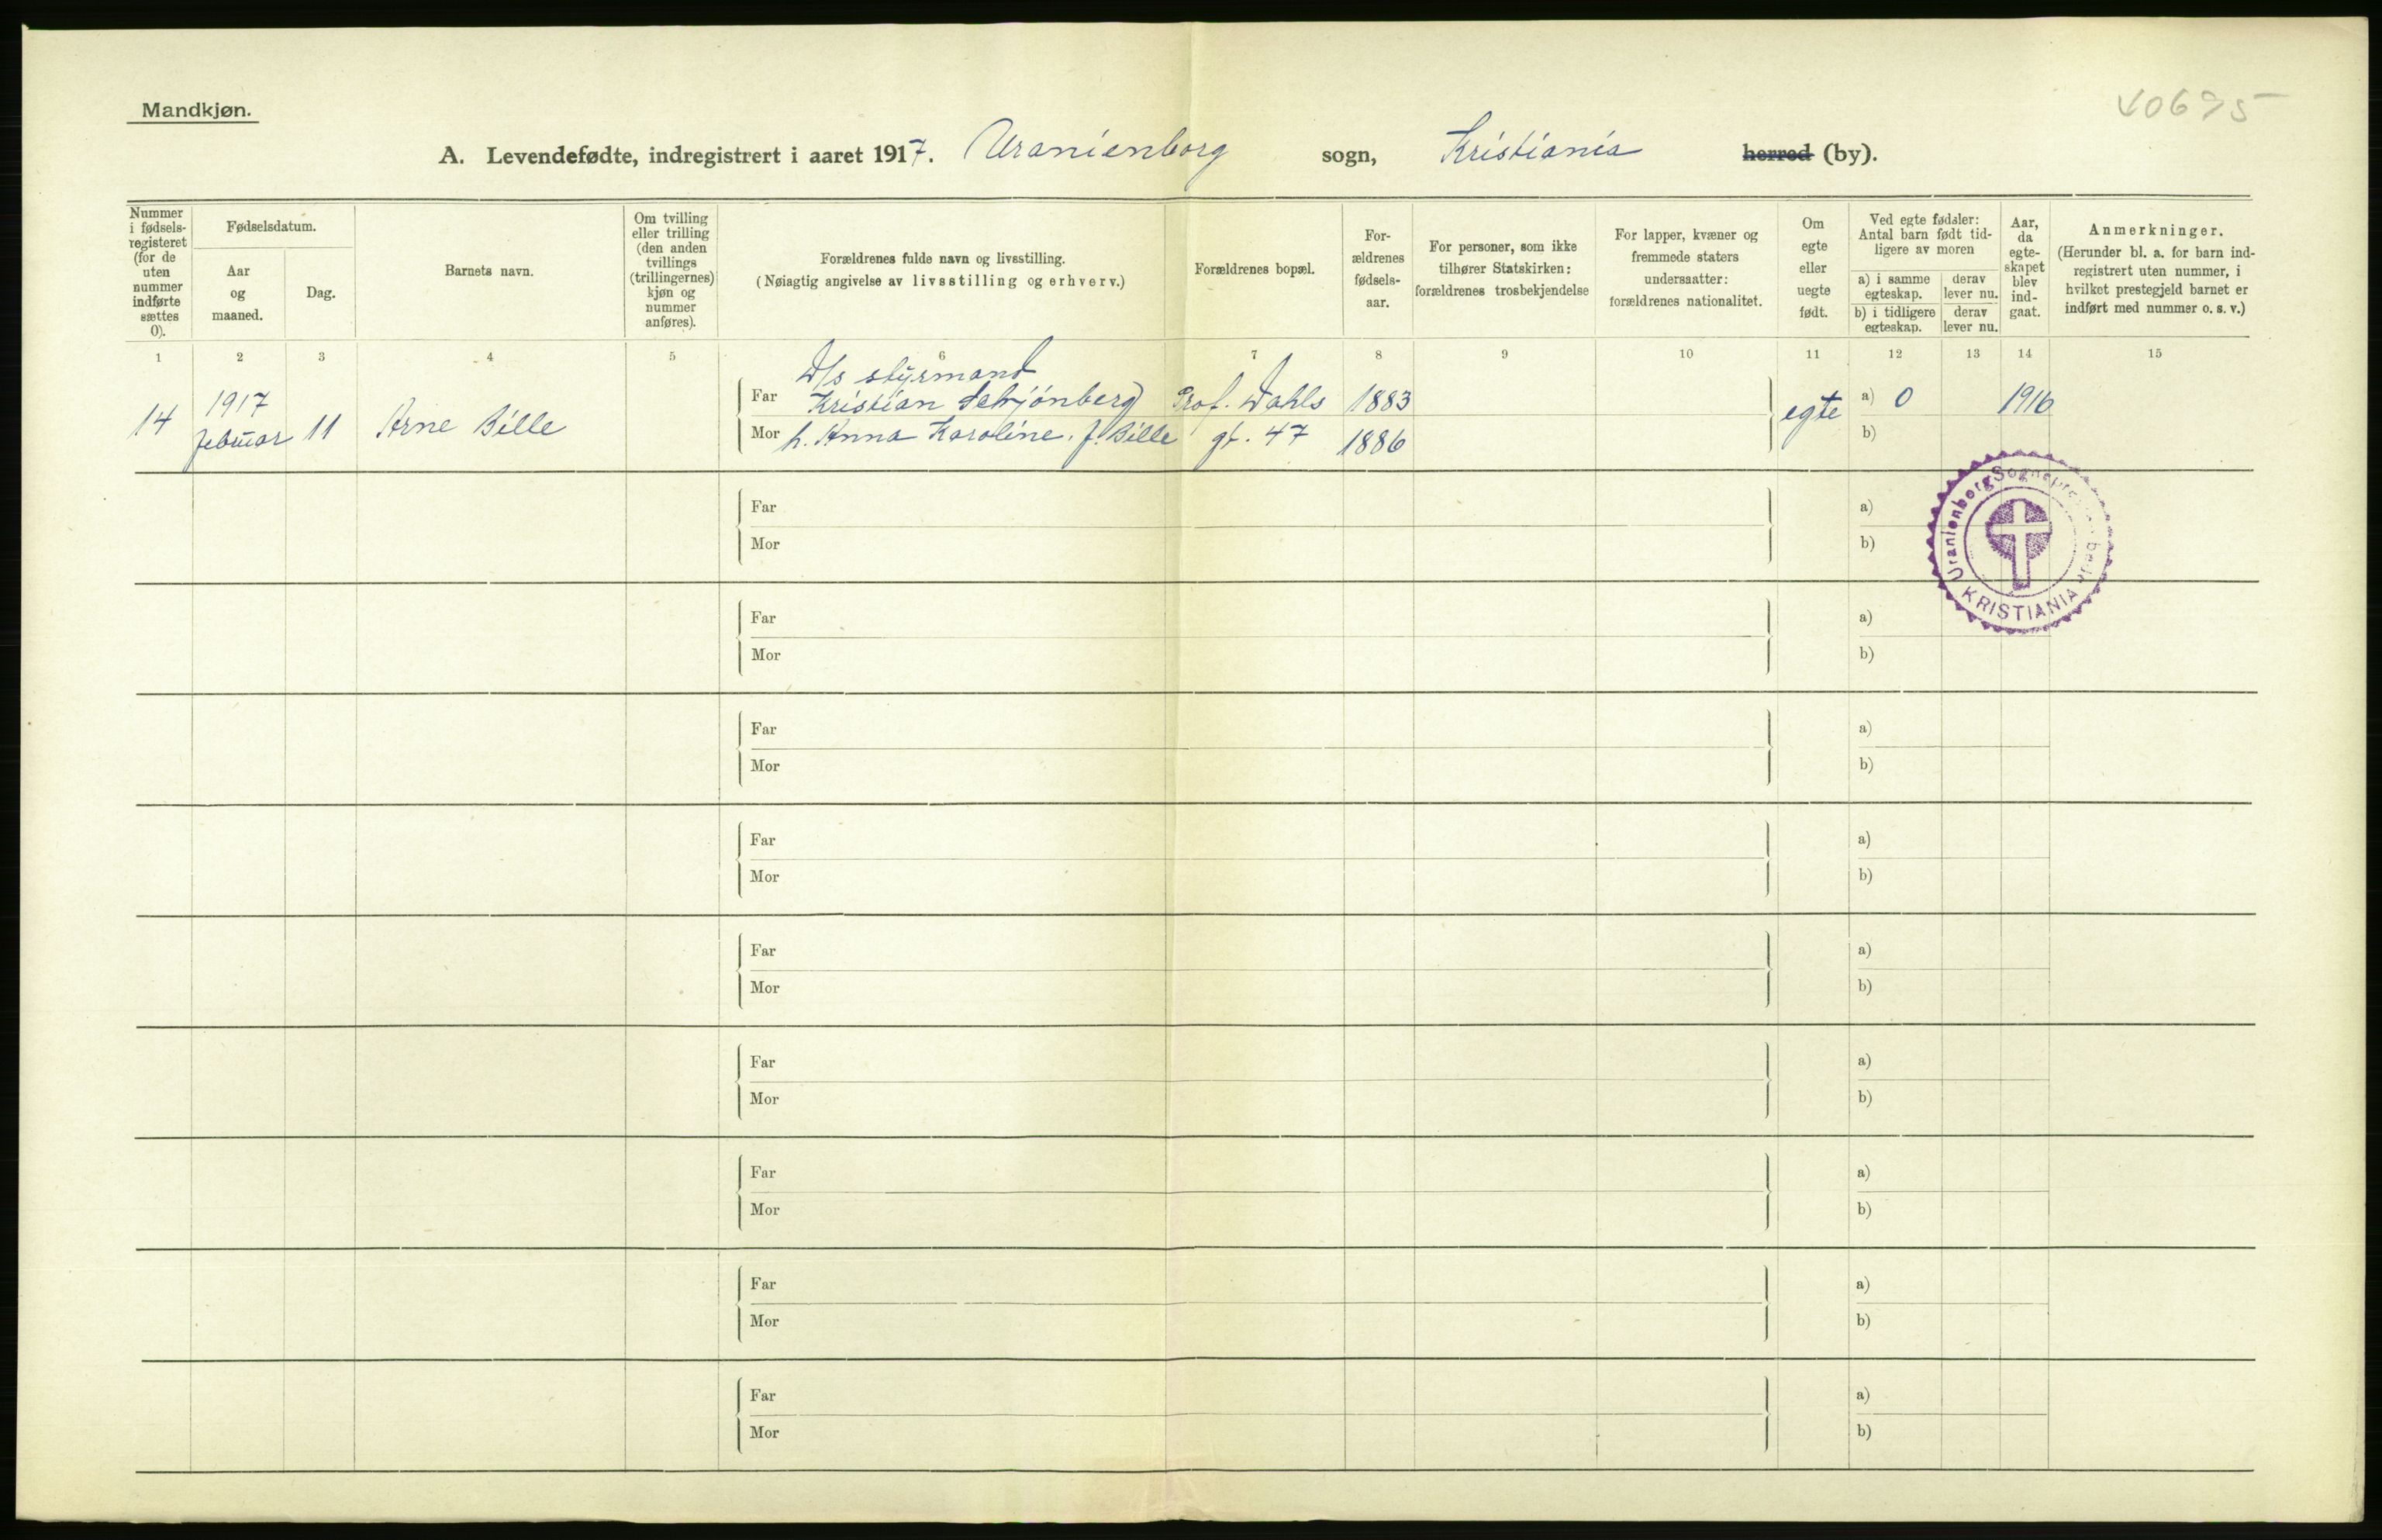 Mandkjøn.
40695
A. Levendefødte, indregistrert i aaret 1917. Uranienborg sogn, Kristiania herred (by).
Nummer i fødsels-registeret (for de uten nummer indførte sættes 0).
Fødselsdatum.
Aar og maaned.
Dag.
Barnets navn.
Om tvilling eller trilling (den anden tvillings (trillingernes) kjøn og nummer anføres).
Forældrenes fulde navn og livsstilling.
(Nøiagtig angivelse av livsstilling og erhverv.)
Forældrenes bopæl.
For-ældrenes fødsels-aar.
For personer, som ikke tilhører Statskirken: forældrenes trosbekjendelse
For lapper, kvæner og fremmede staters undersaatter: forældrenes nationalitet.
Om egte eller uegte født.
Ved egte fødsler: Antal barn født tid-ligere av moren
a) i samme egteskap.
derav lever nu.
b) i tidligere egteskap.
derav lever nu.
Aar, da egte-skapet blev ind-gaat.
Anmerkninger.
(Herunder bl. a. for barn ind-registrert uten nummer, i hvilket prestegjeld barnet er indført med nummer o. s. v.)
1 2 3 4 5 6 7 8 9 10 11 12 13 14 15
D/s styrmand
14 1917 februar 11 Arne Bille
Far Kristian Schjönberg Prof. Dahls 1883 egte a) 0 1916
Mor h. Anna Karoline. f. Bille gt. 47 1886 b)
Uranienborg Sogneprestembede
KRISTIANIA
Far a)
Mor b)
Far a)
Mor b)
Far a)
Mor b)
Far a)
Mor b)
Far a)
Mor b)
Far a)
Mor b)
Far a)
Mor b)
Far a)
Mor b)
Far a)
Mor b)